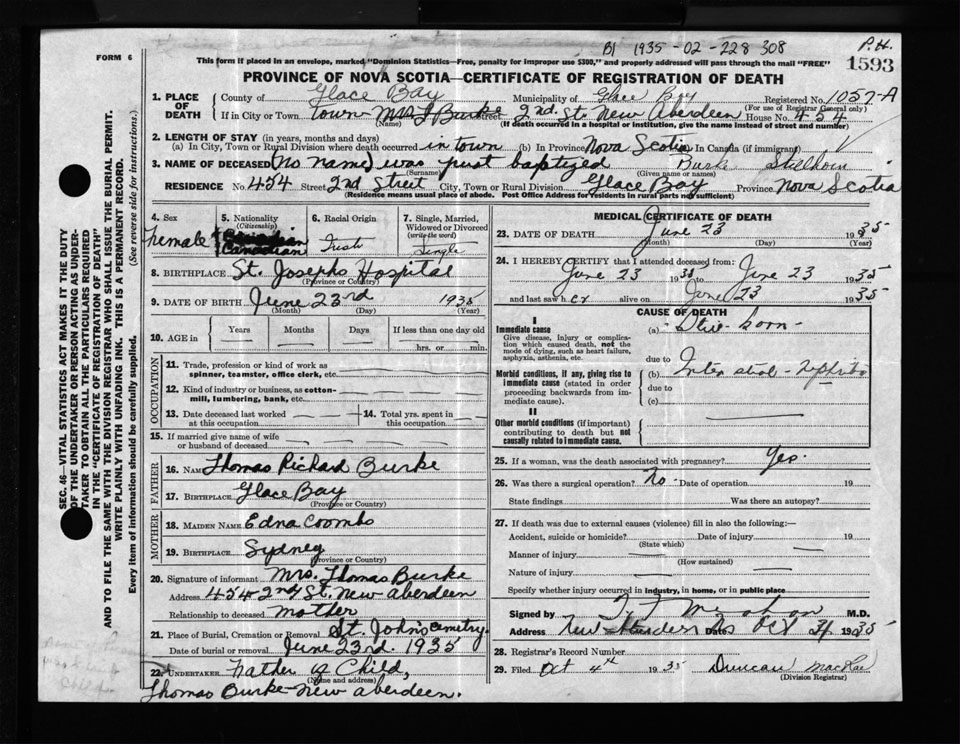 B1 1935-02-228 308
P.H.
FORM 6
This form if placed in an envelope, marked "Dominion Statistics—Free, penalty for improper use $300," and properly addressed will pass through the mail "FREE"
1593
PROVINCE OF NOVA SCOTIA—CERTIFICATE OF REGISTRATION OF DEATH
1. PLACE OF DEATH
County of Glace Bay Municipality of Glace Bay Registered No. 1057-A
(For use of Registrar General only)
If in City or Town Town Mrs T Burke Street 2nd. St. New Aberdeen House No. 454
(Name) (If death occurred in a hospital or institution, give the name instead of street and number)
2. LENGTH OF STAY (in years, months and days)
(a) In City, Town or Rural Division where death occurred in town (b) In Province Nova Scotia In Canada (if immigrant)
3. NAME OF DECEASED (No name) was just baptized Burke Stillborn
(Surname) (Given name or names)
RESIDENCE No. 454 Street 2nd Street City, Town or Rural Division Glace Bay Province Nova Scotia
(Residence means usual place of abode. Post Office Address for residents in rural parts not sufficient)
4. Sex
Female
5. Nationality
(Citizenship)
Canadian
6. Racial Origin
Irish
7. Single, Married, Widowed or Divorced
(write the word)
Single
8. BIRTHPLACE St. Josephs Hospital
(Province or Country)
9. DATE OF BIRTH June 23rd 1935
(Month) (Day) (Year)
10. AGE in Years Months Days If less than one day old
hrs. or min.
OCCUPATION
11. Trade, profession or kind of work as
spinner, teamster, office clerk, etc.
12. Kind of industry or business, as cotton-
mill, lumbering, bank, etc.
13. Date deceased last worked
at this occupation
14. Total yrs. spent in
this occupation
15. If married give name of wife
or husband of deceased
FATHER
16. NAME Thomas Richard Burke
17. BIRTHPLACE Glace Bay
(Province or Country)
MOTHER
18. MAIDEN NAME Edna Coombs
19. BIRTHPLACE Sydney
(Province or Country)
20. Signature of informant Mrs. Thomas Burke
Address 454 2nd St. New Aberdeen
Relationship to deceased Mother
21. Place of Burial, Cremation or Removal St. John's Cemetry.
Date of burial or removal June 23rd. 1935
22. UNDERTAKER Father of Child,
(Name and address)
Thomas Burke-New Aberdeen.
MEDICAL CERTIFICATE OF DEATH
23. DATE OF DEATH June 23 1935
(Month) (Day) (Year)
24. I HEREBY CERTIFY that I attended deceased from:
June 23 1935 to June 23 1935
and last saw her alive on June 23 1935
CAUSE OF DEATH
I
Immediate cause
Give disease, injury or complica-
tion which caused death, not the
mode of dying, such as heart failure,
asphyxia, asthenia, etc.
(a) Still-born-
due to
Morbid conditions, if any, giving rise to
immediate cause (stated in order
proceeding backwards from im-
mediate cause).
(b)
due to
(c)
II
Other morbid conditions (if important)
contributing to death but not
causally related to immediate cause.
25. If a woman, was the death associated with pregnancy? Yes.
26. Was there a surgical operation? No - Date of operation 19
State findings Was there an autopsy?
27. If death was due to external causes (violence) fill in also the following:—
Accident, suicide or homicide? Date of injury 19
(State which)
Manner of injury
(How sustained)
Nature of injury
Specify whether injury occurred in industry, in home, or in public place
Signed by M.D.
Address New Aberdeen Date Oct 3 1935
28. Registrar's Record Number
29. Filed Oct 4th 1935 Duncan MacRae
(Division Registrar)
SEC. 46—VITAL STATISTICS ACT MAKES IT THE DUTY
OF THE UNDERTAKER OR PERSON ACTING AS UNDER-
TAKER TO OBTAIN ALL THE PARTICULARS REQUIRED
IN THE "CERTIFICATE OF REGISTRATION OF DEATH"
AND TO FILE THE SAME WITH THE DIVISION REGISTRAR WHO SHALL ISSUE THE BURIAL PERMIT.
WRITE PLAINLY WITH UNFADING INK. THIS IS A PERMANENT RECORD.
Every item of information should be carefully supplied. (See reverse side for instructions.)